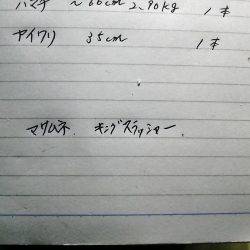 ハマチ ~60cm 2.90kg 1本
ヤイワリ 35cm 1本
マサムネ. キングスラッシャー.